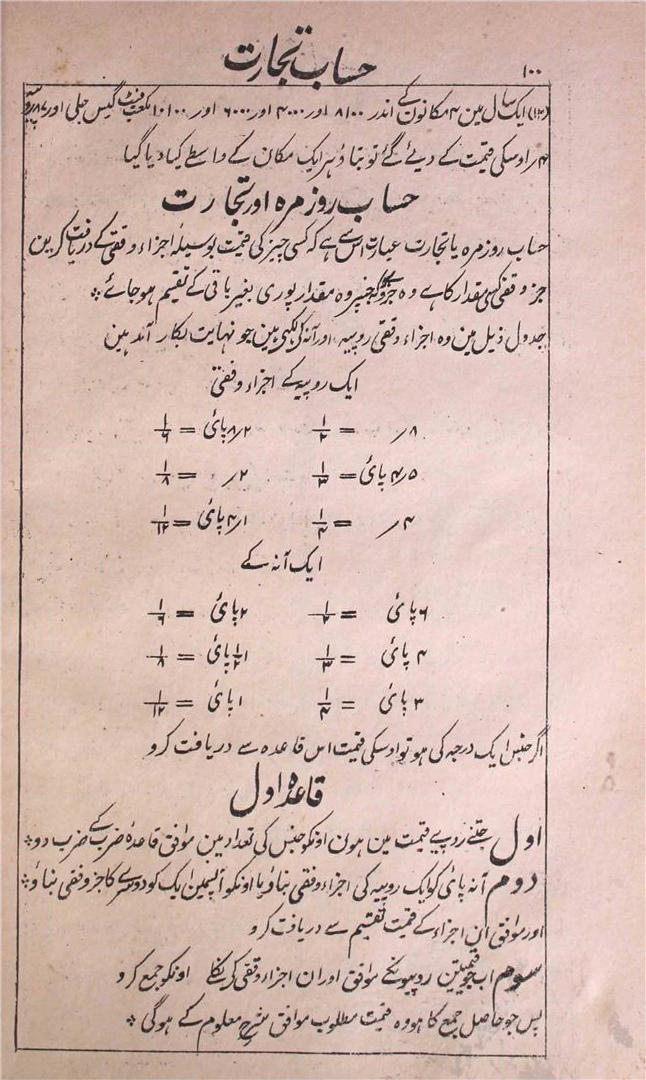 ۱۰۰
حساب تجارت
(۱۲) ایک سال مین ۴ مکانون کے اندر ۸۱۰۰ اور ۴۰۰۰ اور ۶۰۰۰ اور ۱۰۱۰۰ مکعب فیٹ گیس جلی اور ۸۷ روپیہ
۴ر اوسکی قیمت کے دیئے گئے تو بتاؤ ہر ایک مکان کے واسطے کیا دیا گیا
حساب روزمرہ اور تجارت
حساب روزمرہ یا تجارت عبارت اس سے ہے کہ کسی چیز کی قیمت بوسیلہ اجزاء وفقی کے دریافت کرین
جز وفقی کسی مقدار کا ہے وہ جز ہوگا جسپر وہ مقدار پوری بغیر باقی کے تقیم ہوجائے ؞
جدول ذیل مین وہ اجزاء وفقی روپیہ اور آنہ کی لکھی ہین جو نہایت بکار آمد ہین
ایک روپیہ کے اجزاء وفقی
۸ر = ۱/۲ ۲ر۸ پائی = ۱/۶
۵ر۴ پائی = ۱/۳ ۲ر = ۱/۸
۴ر = ۱/۴ ۱ر۴ پائی = ۱/۱۲
ایک آنہ کے
۶ پائی = ۱/۲ ۲ پائی = ۱/۶
۴ پائی = ۱/۳ ۱ ۱/۲ پائی = ۱/۸
۳ پائی = ۱/۴ ۱ پائی = ۱/۱۲
اگر جنس ایک درجہ کی ہو تو اوسکی قیمت اس قاعدہ سے دریافت کرو
قاعدہ اول
اول جتنے روپیے قیمت مین ہون اونکو جنس کی تعداد مین موافق قاعدہ ضرب کے ضرب دو ؞
دوم آنہ پائی کو ایک روپیہ کی اجزاء وفقی بناؤ یا اونکو آپسمین ایک کو دوسرے کا جز وفقی بناؤ ؞
اور موافق ان اجزاء کے قیمت تقسیم سے دریافت کرو
سوم اب جو قیمتین روپیونکے موافق اور ان اجزاء وفقی کر نکلا اونکو جمع کرو
پس جو حاصل جمع کا ہو وہ قیمت مطلوب موافق شرح معلوم کے ہوگی ؞